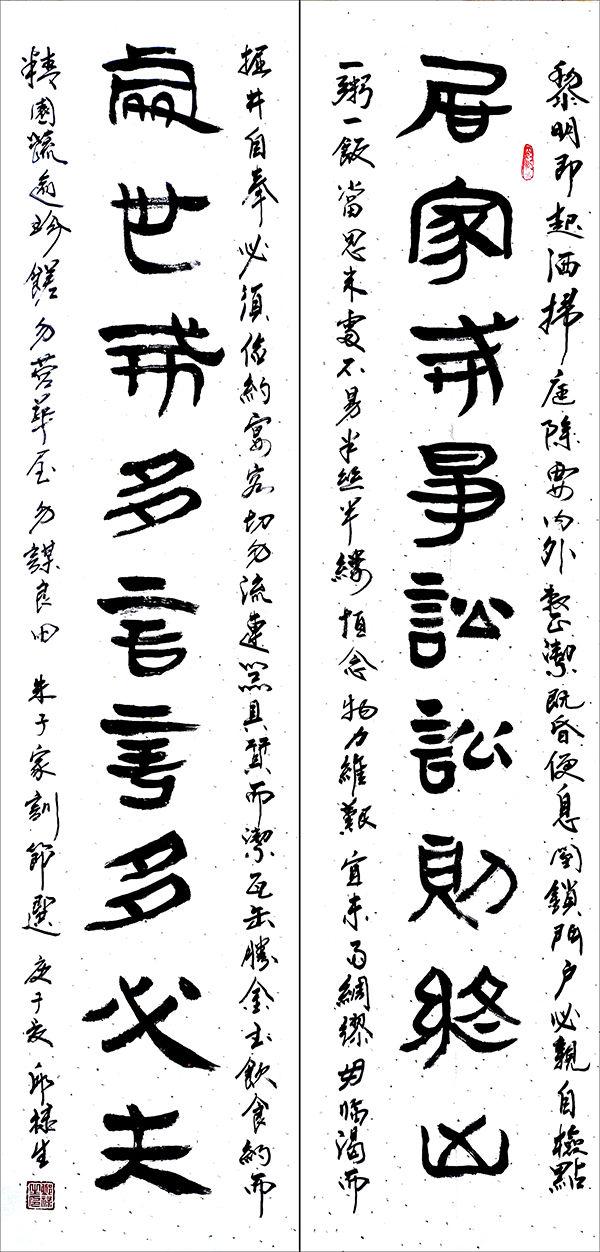 黎明即起洒掃庭除要內外整潔既昏便息關鎖門戶必親自檢點
居家戒爭訟訟則終凶
一粥一飯當思來處不易半絲半縷恒念物力維艱宜未雨綢繆毋臨渴而
掘井自奉必須儉約宴客切勿流連器具質而潔瓦缶勝金玉飲食約而
處世戒多言言多必失
精園蔬逾珍饈勿營華屋勿謀良田 朱子家訓節選 庚子夏 邱 生